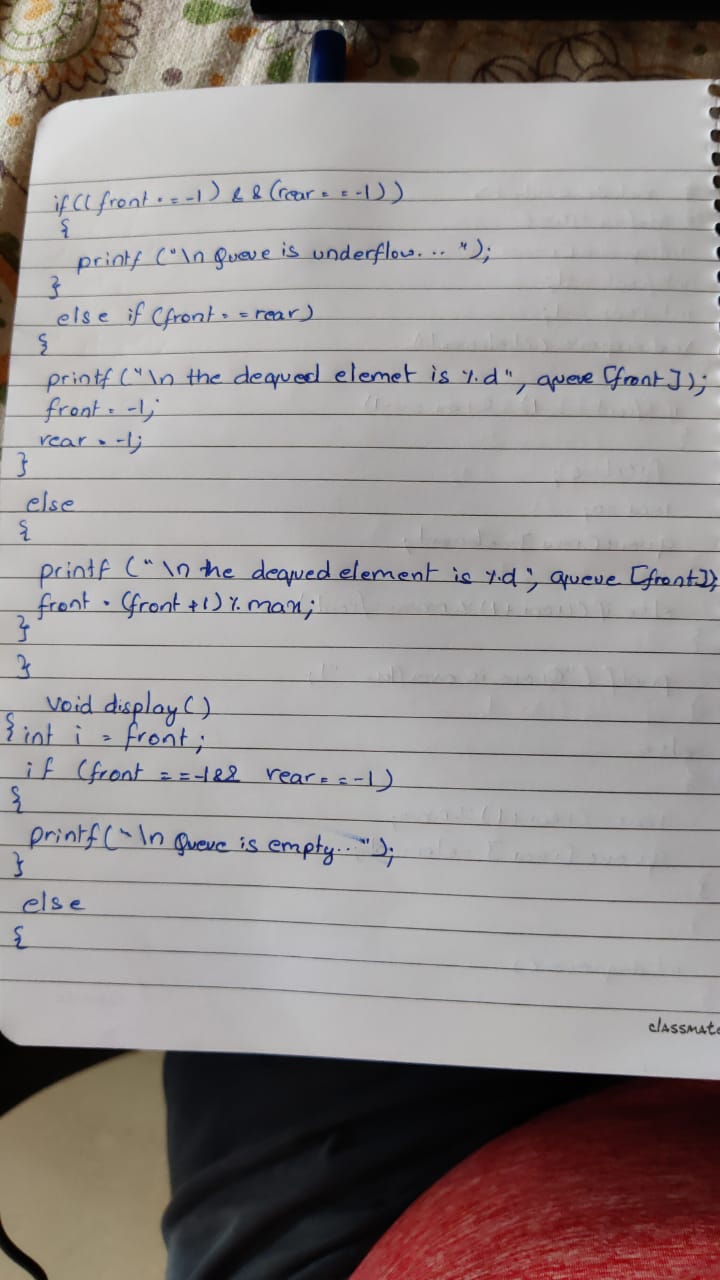 if((front == -1) && (rear == -1))
{
printf ("\n Queue is underflow... ");
}
else if (front == rear)
{
printf ("\n the dequed elemet is %d", queue [front]);
front = -1;
rear = -1;
}
else
{
printf ("\n the dequed element is %d", queue [front]);
front = (front +1) % max;
}
}
void display()
{ int i = front;
if (front == -1 && rear == -1)
{
printf("\n Queue is empty..");
}
else
{
classmate